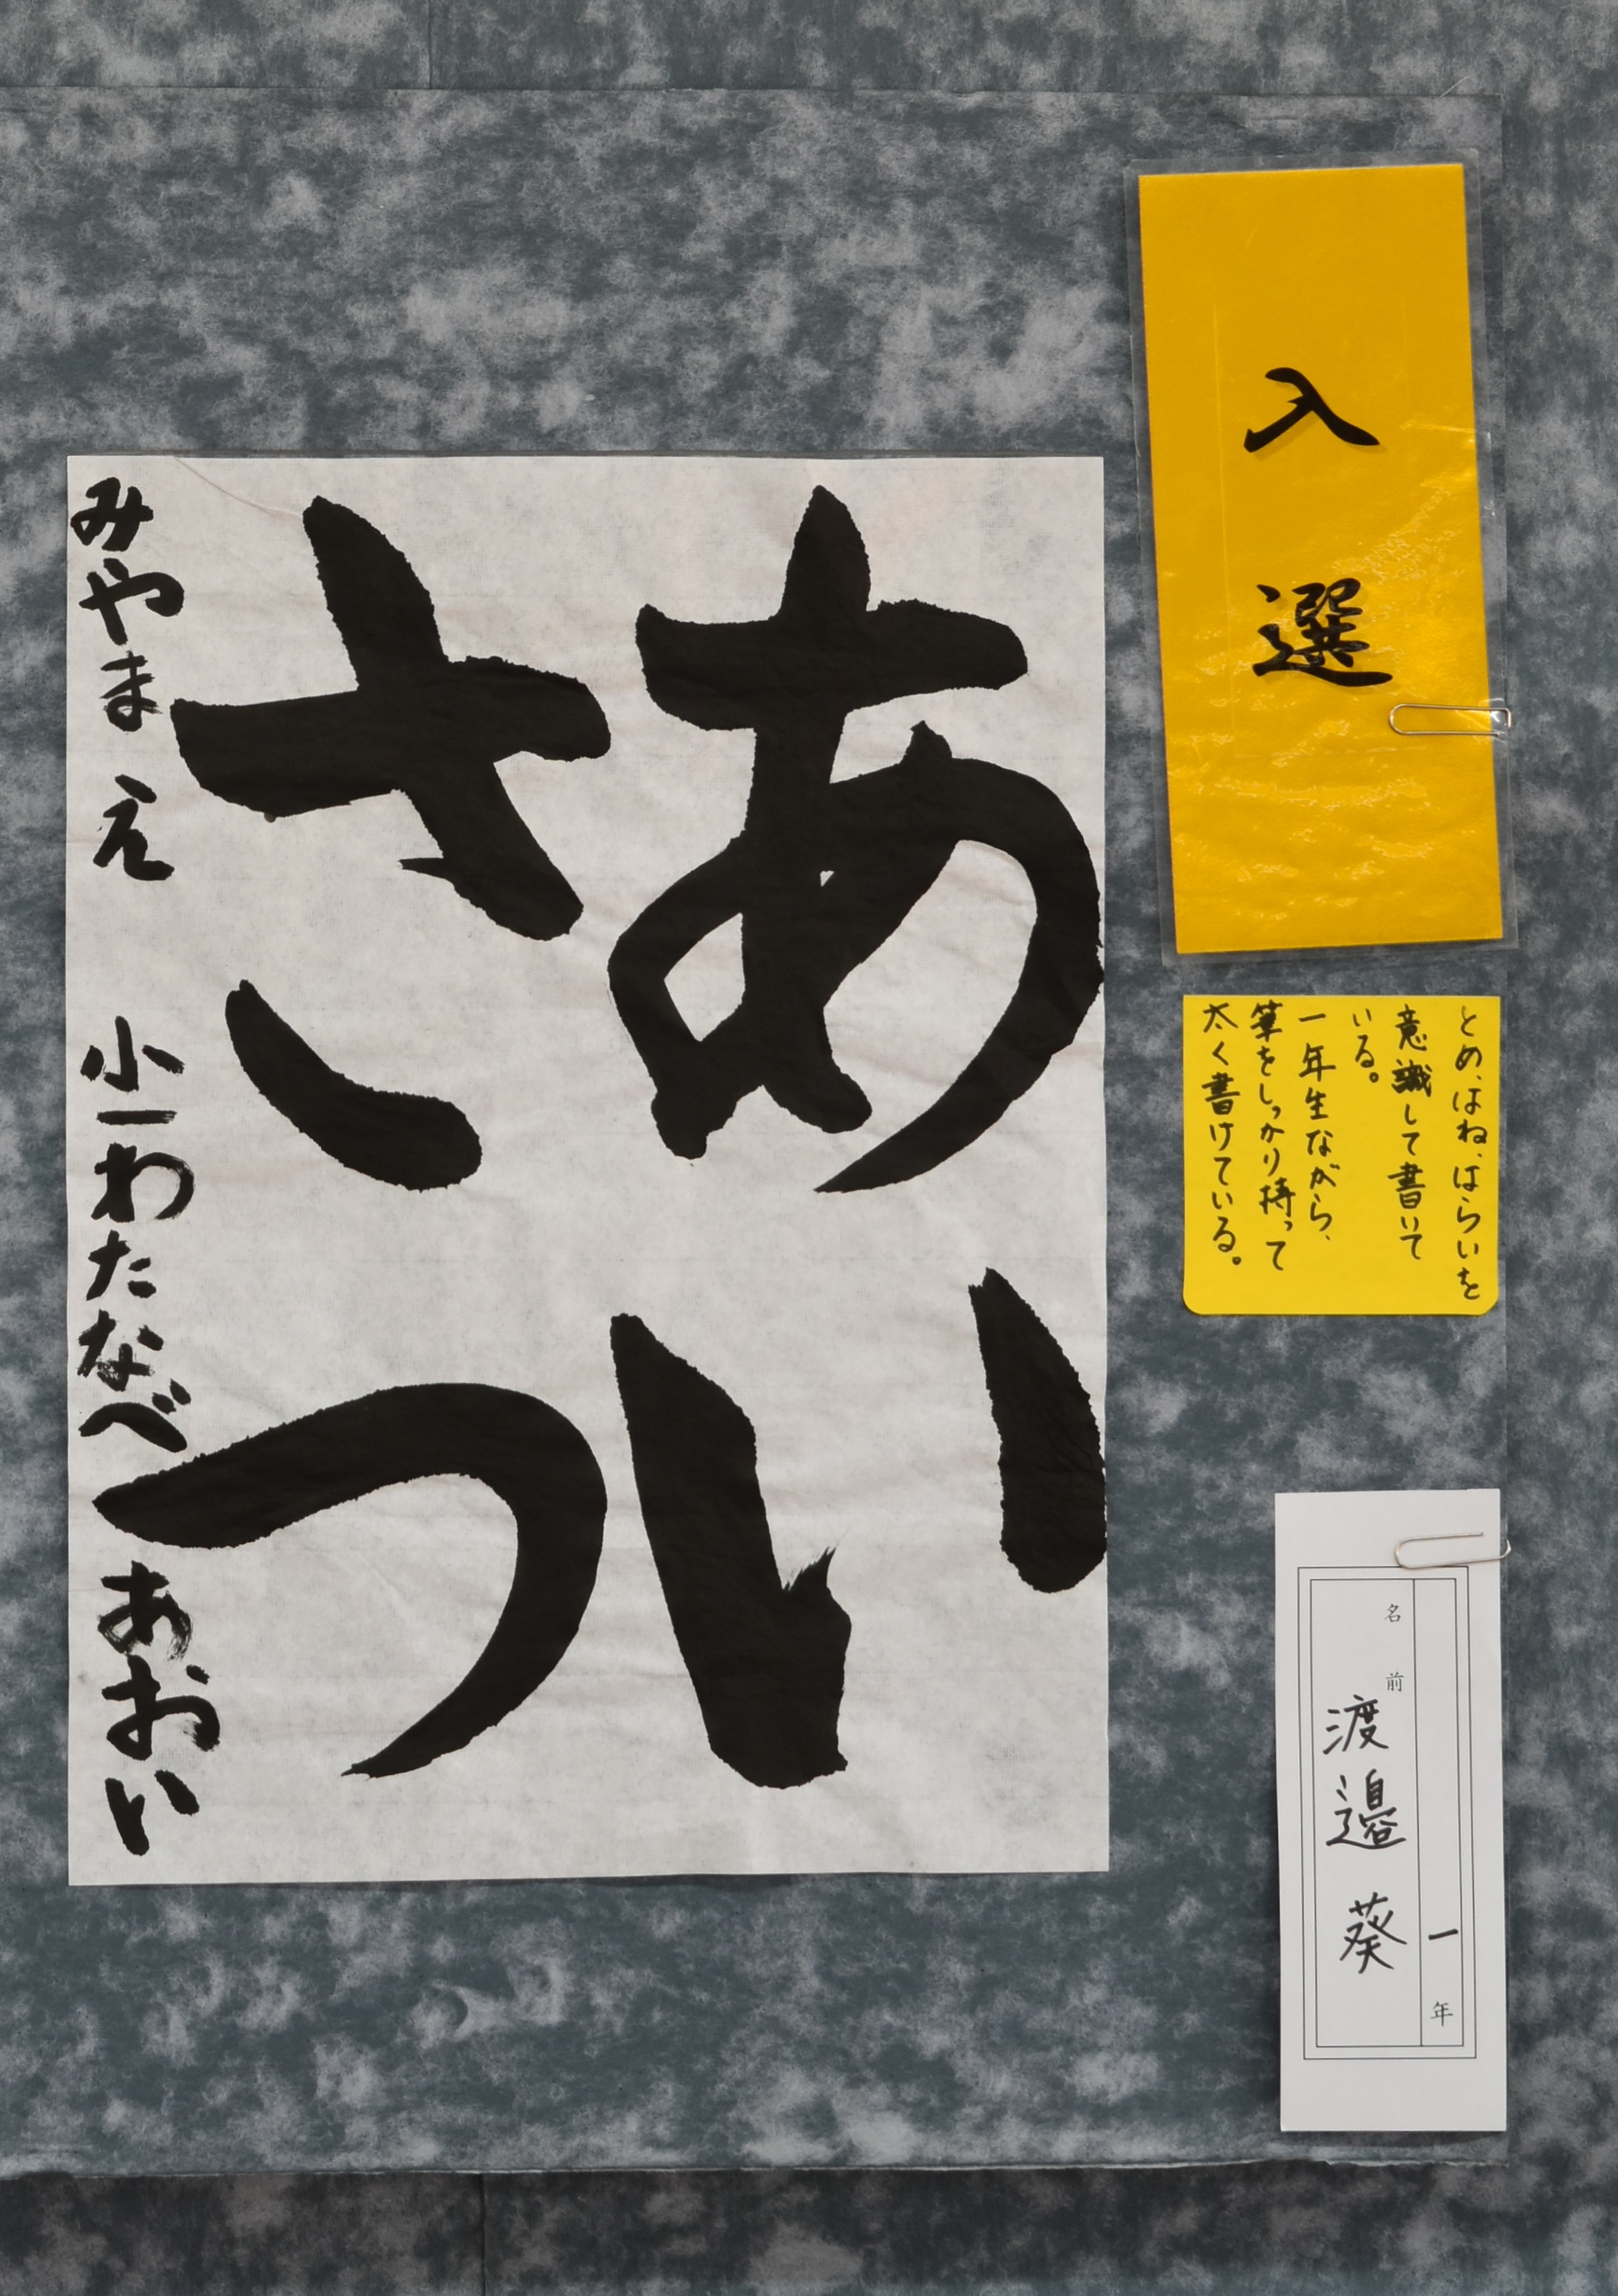 入選
とめ、はね、はらいを
意識して書いて
いる。
一年生ながら、
筆をしっかり持って
太く書けている。
一年
名前 渡邉 葵
あい
さつ
みやまえ 小一 わたなべ あおい